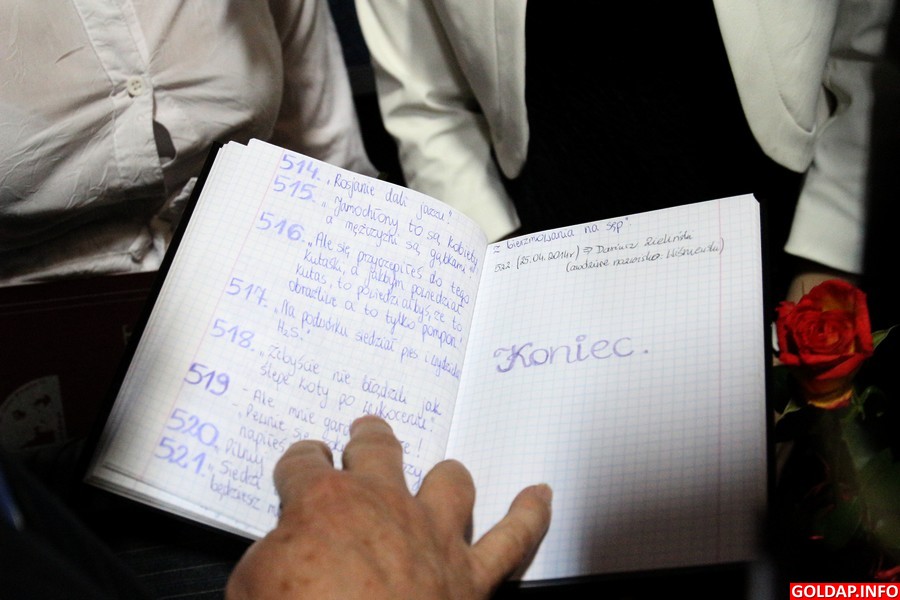 514. „Rosjanie dali jazzu!"
515. „Jamochłony to są kobiety,
a mężczyźni są gąbkami."
516. „Ale się przyczepiłeś do tego
kutasa, a jakbym powiedział
kutas, to powiedziałbyś, że to
obraźliwe a to tylko pompon."
517. „Na podwórku siedział pies i wydzielał
H₂S."
518. „Żebyście nie błądzili jak
ślepe koty po
519 - Ale mnie
- Pewnie się
napiłeś
520.
521. „Siedzi
będziesz
z bierzmowania na SSP"
522. (25.04.2014r) Dariusz Zieliński
(rodzinne nazwisko: Wiśniewski)
Koniec.
GOLDAP.INFO